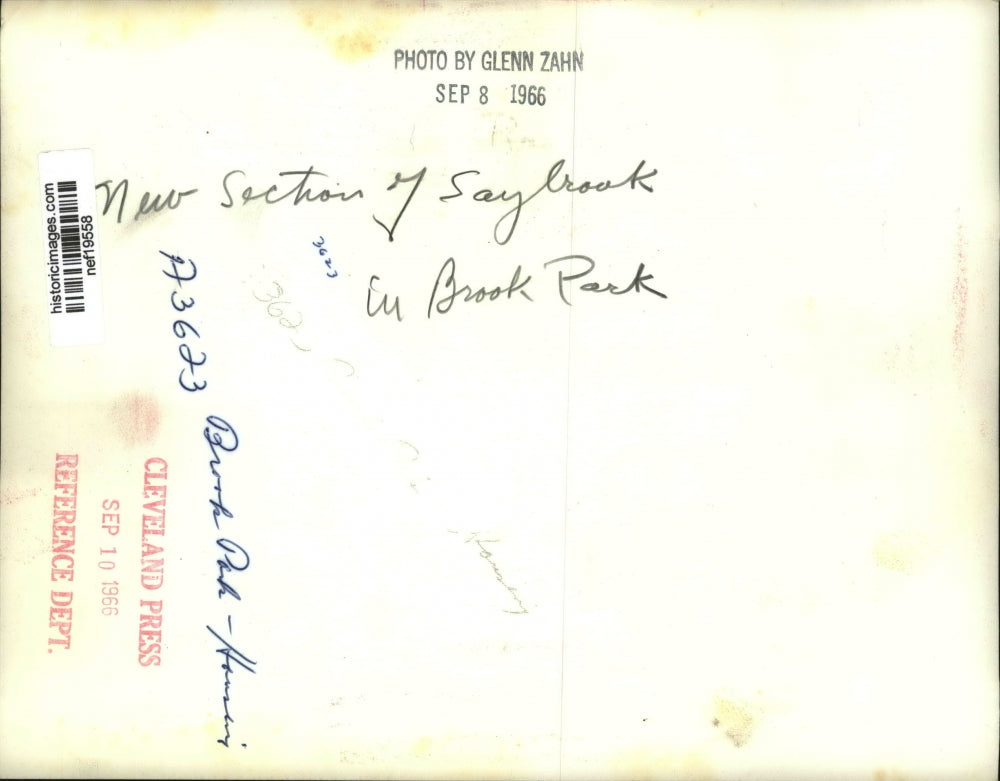 PHOTO BY GLENN ZAHN
SEP 8 1966
New Section of Saybrook
in Brook Park
historicimages.com
nef19558
3623
A3623 Brook Park - Housing
362
Housing
CLEVELAND PRESS
SEP 10 1966
REFERENCE DEPT.